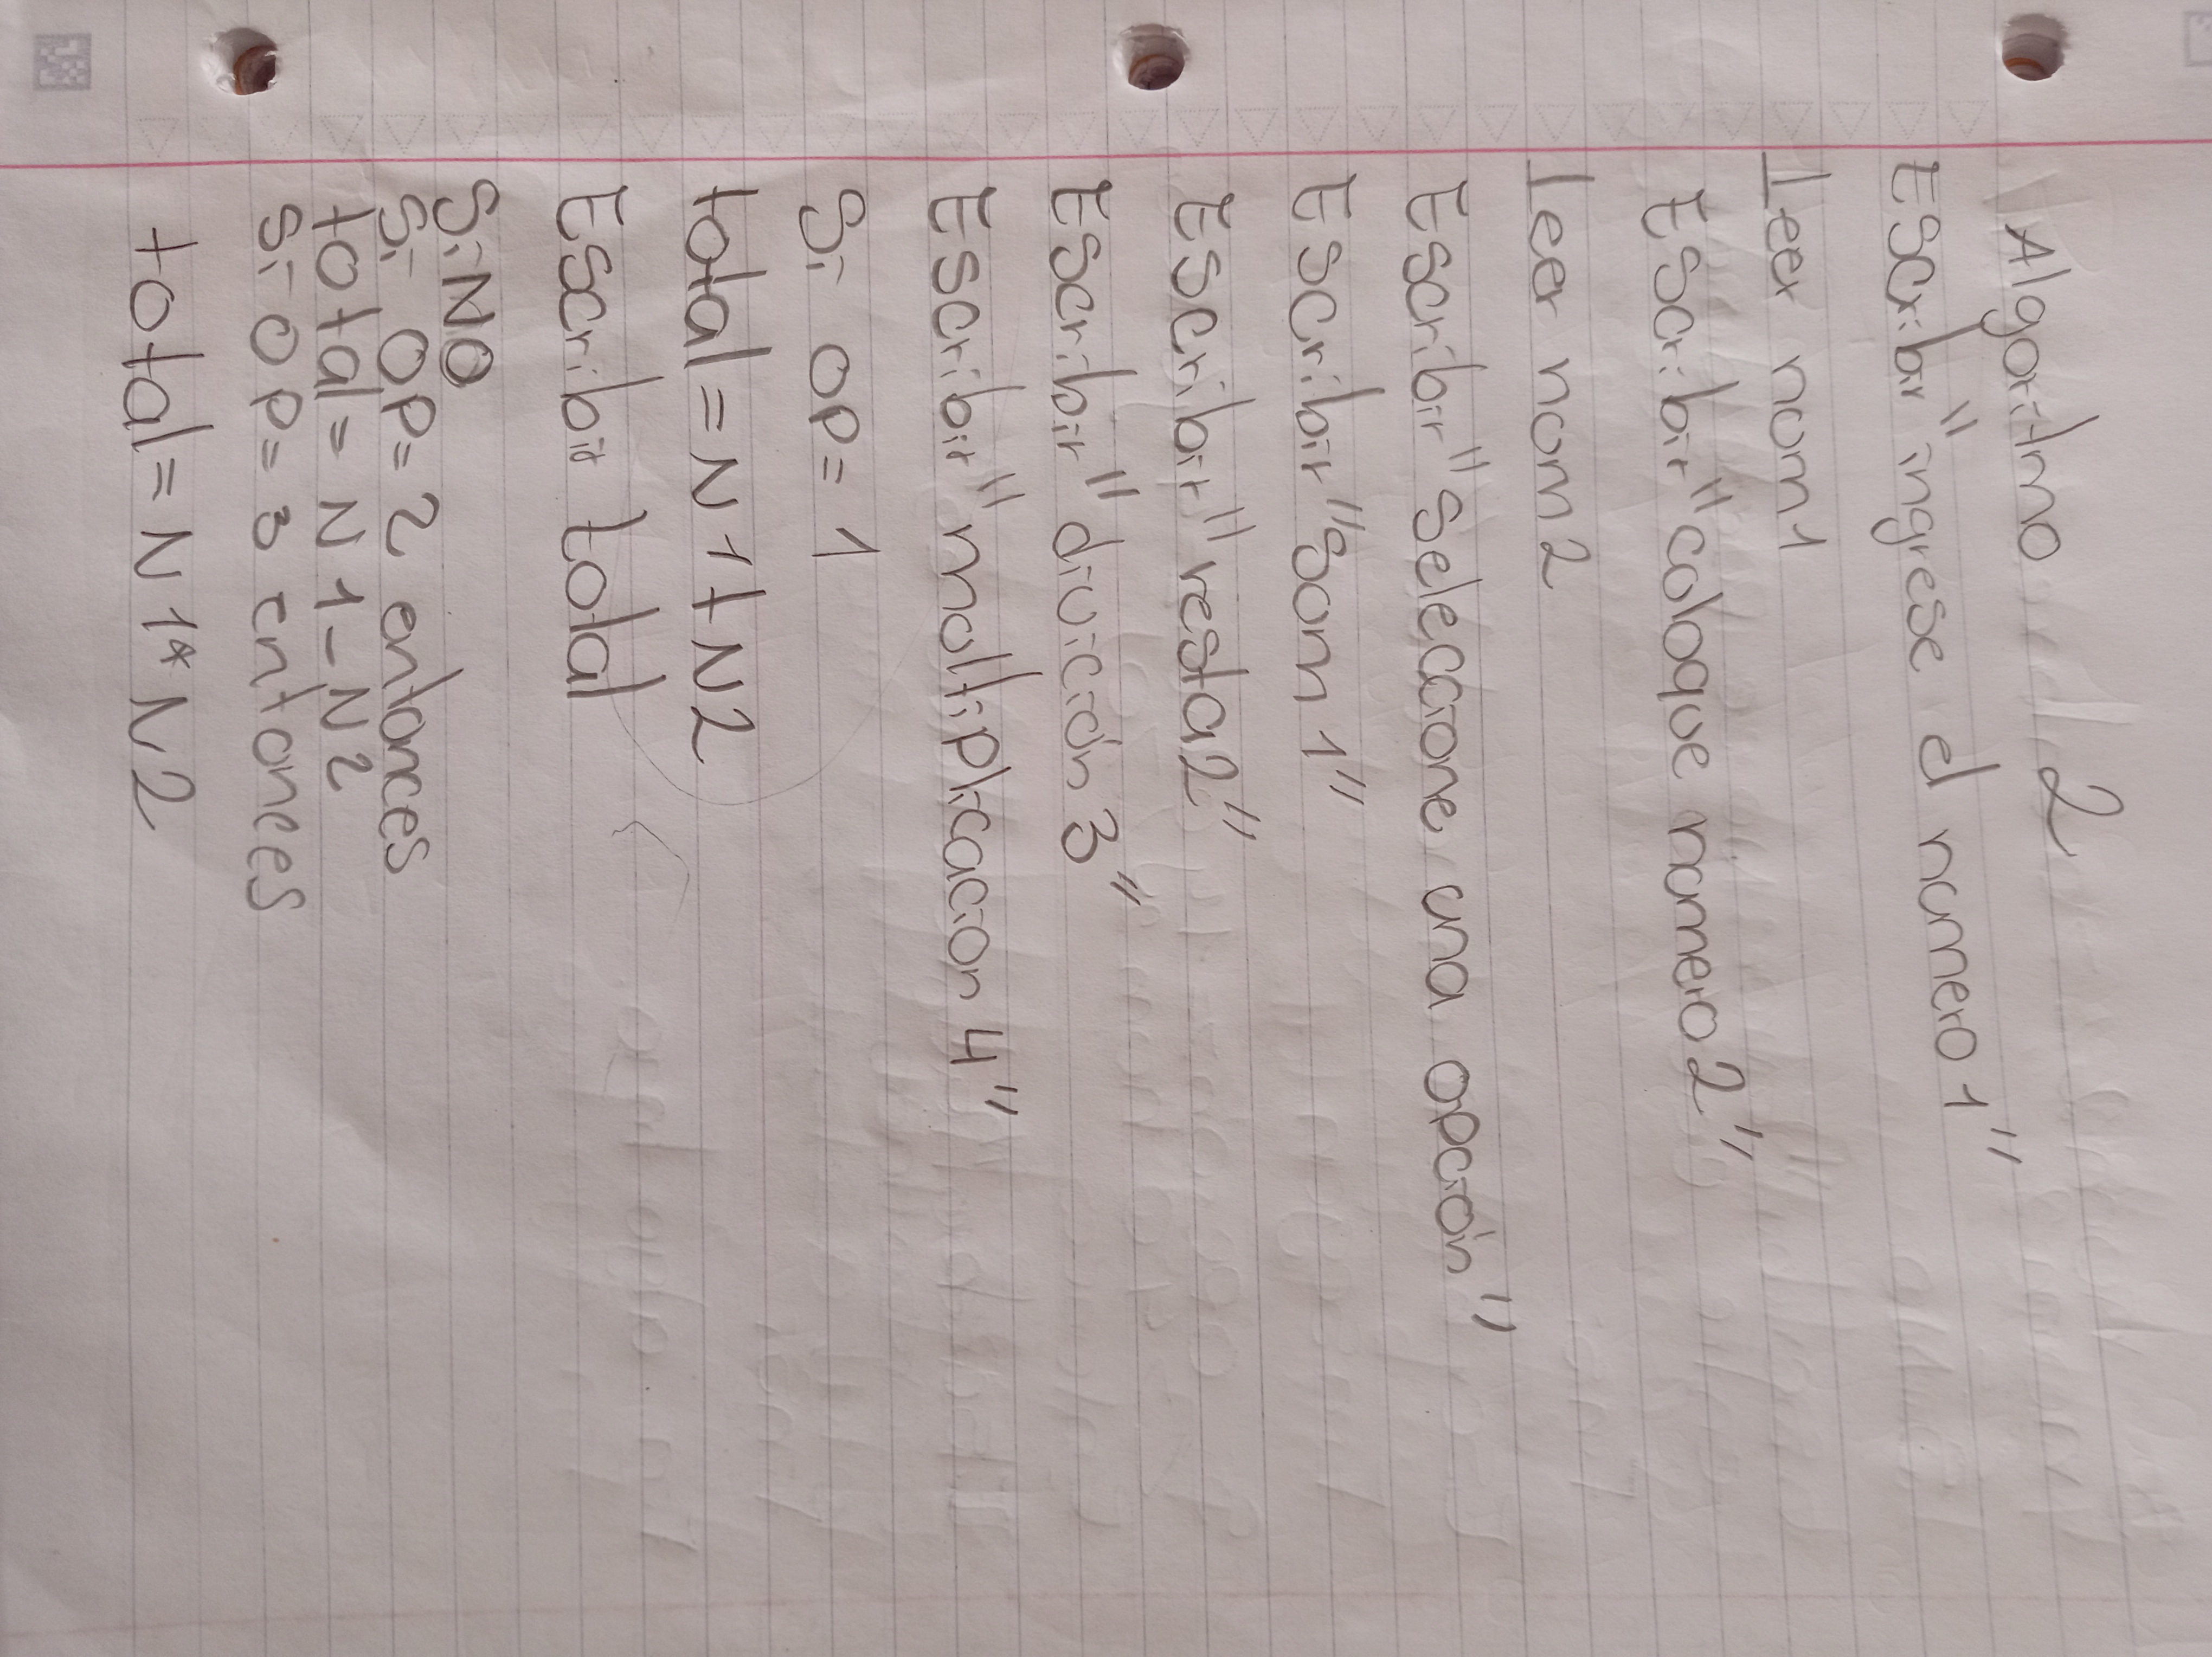 Algoritmo 2
Escribir "ingrese el numero 1"
Leer num1
Escribir "coloque numero 2"
Leer num2
Escribir "seleccione una opción"
Escribir "Sum 1"
Escribir "resta 2"
Escribir "divición 3"
Escribir "multiplicacion 4"
Si OP = 1
total = N1+N2
Escribir total
SiNO
Si OP = 2 entonces
total = N1-N2
Si OP = 3 entonces
total = N1*N2